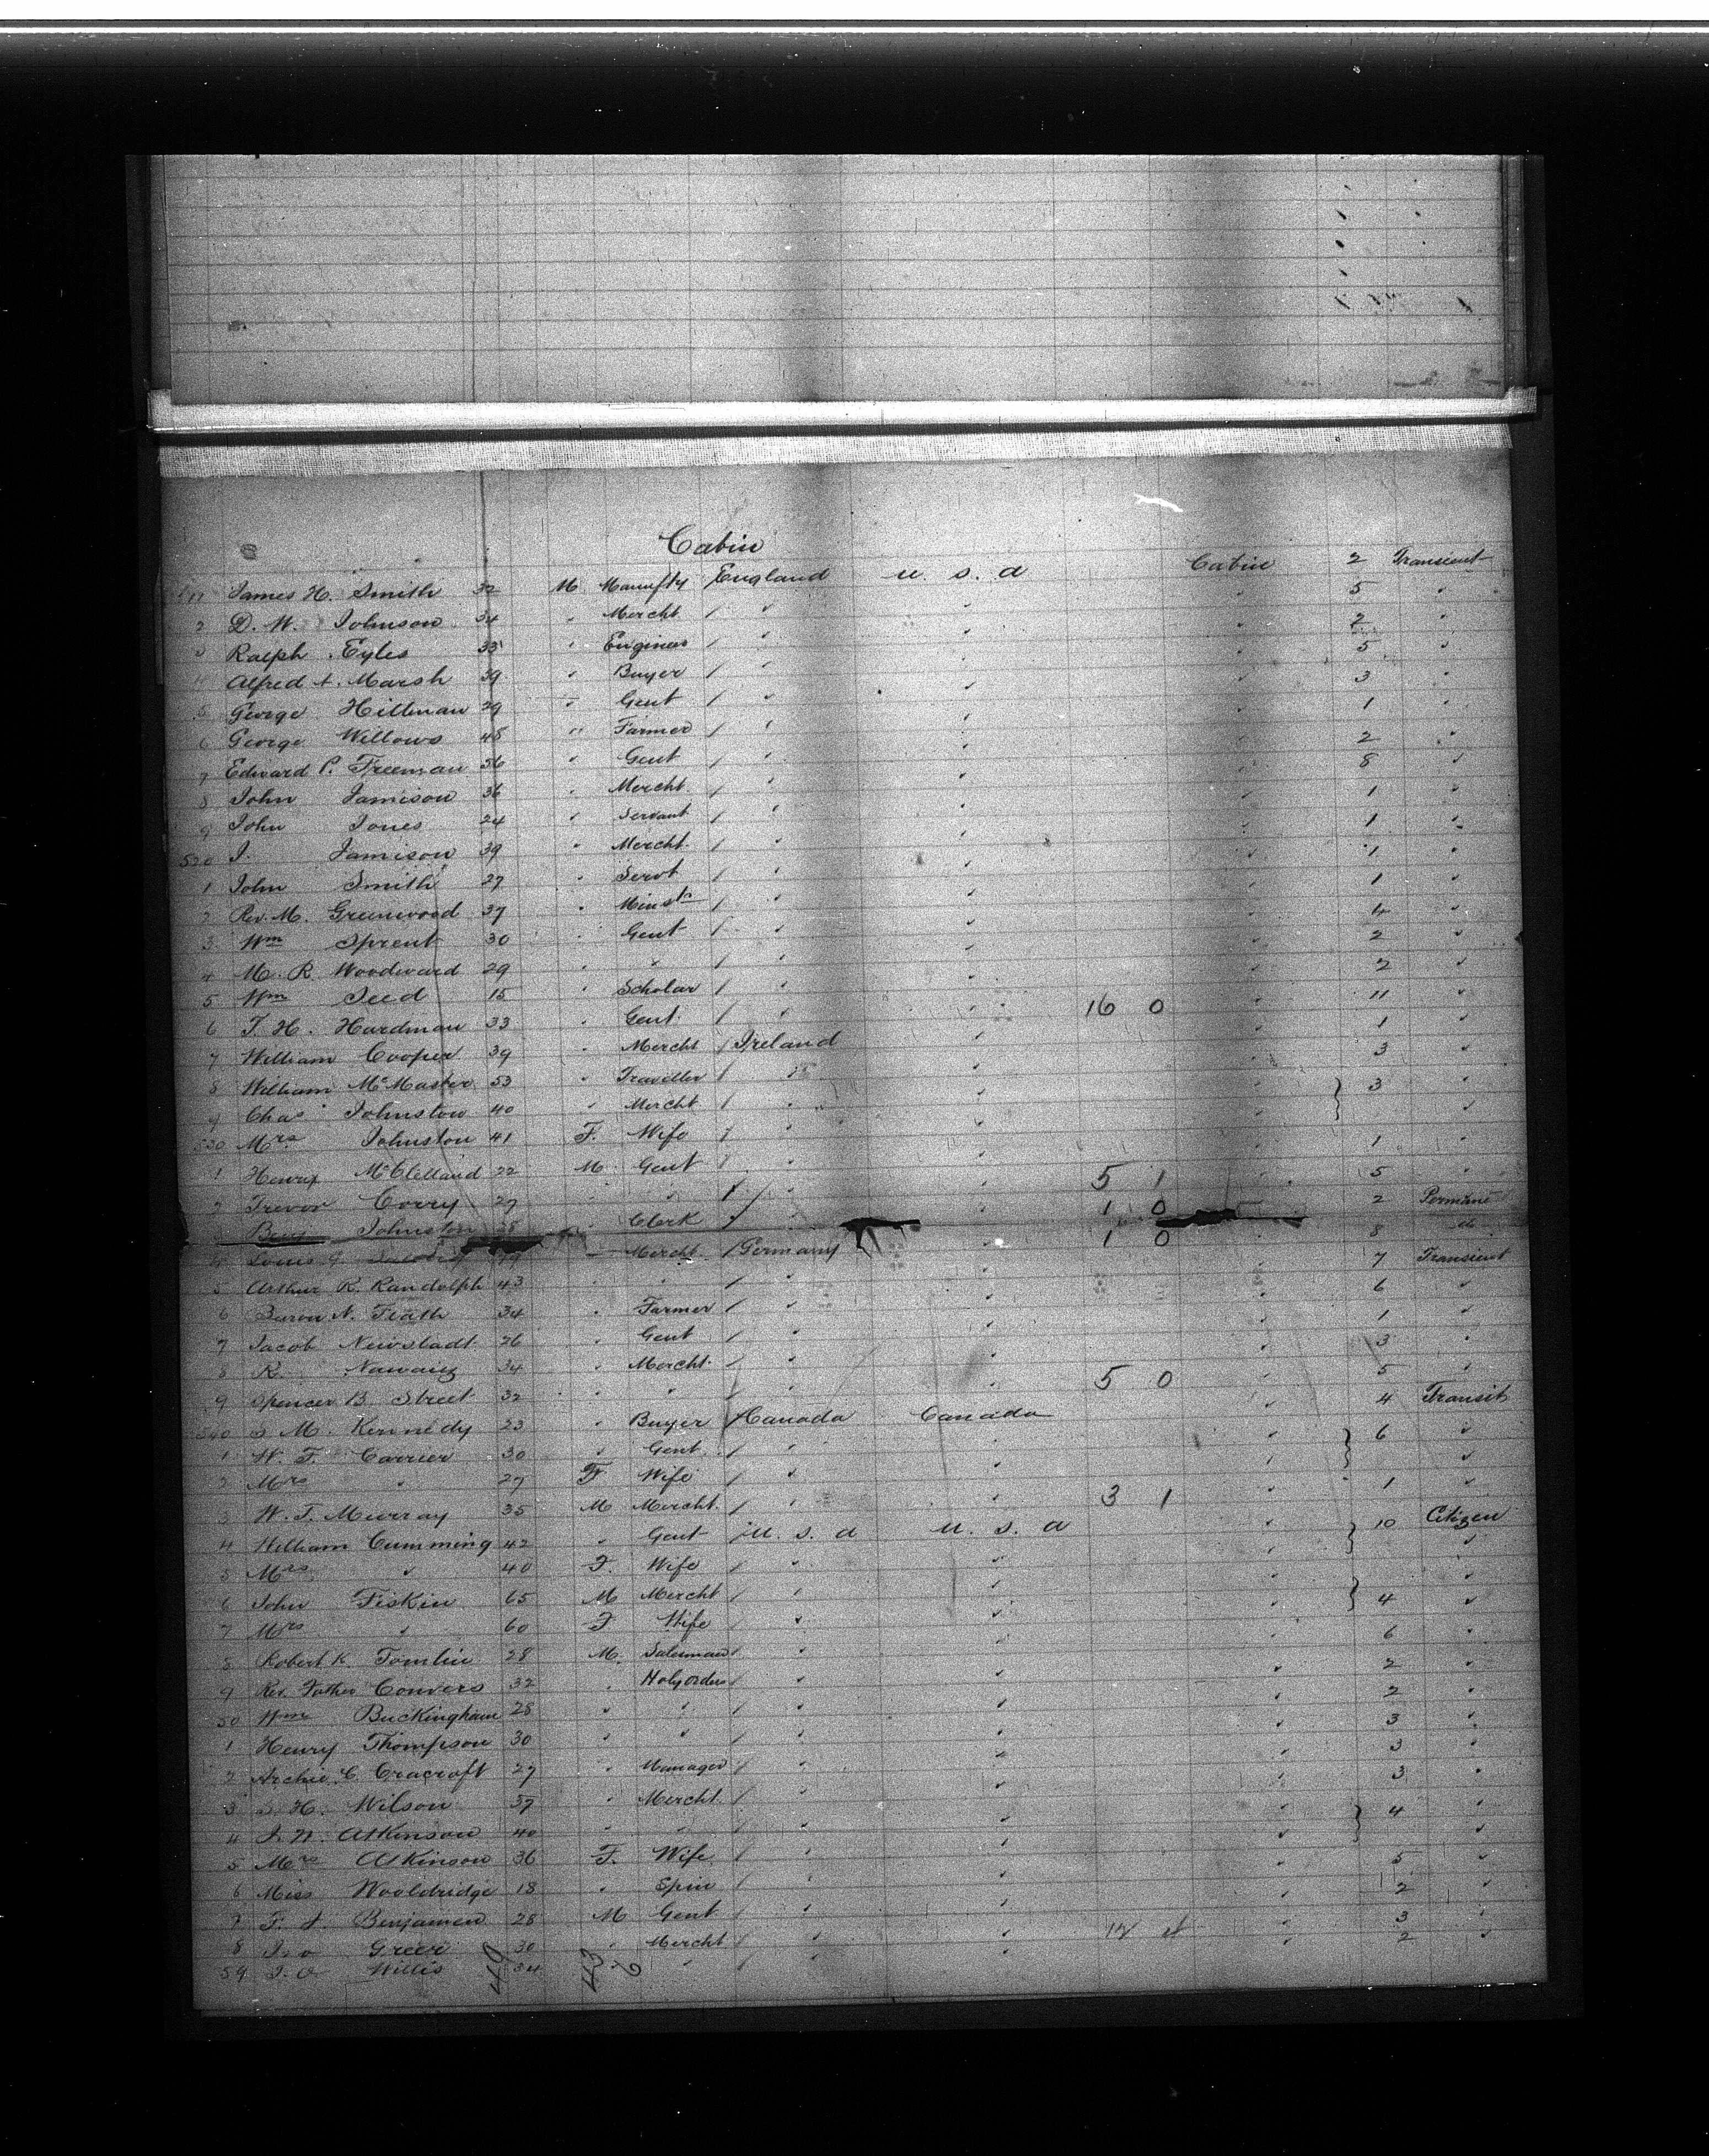 Cabin
James H. Smith 32 M Manufty England U. S. A Cabin 2 Transient
2 D. W. Johnson 34 " Mercht " " " 5 "
Ralph Eyles 35 " Engineer " " " 2 "
Alfred A. Marsh 39 " Buyer " " " 5 "
5 George Hillman 29 " Gent " " " 3 "
6 George Willows 45 " Farmer " " " 1 "
7 Edward P. Freeman 56 " Gent " " " 2 "
8 John Jamison 36 " Mercht. " " " 8 "
9 John Jones 24 " Servant " " " 1 "
520 J. Jamison 39 " Mercht. " " " 1 "
1 John Smith 27 " Servt " " " 1 "
2 Rev. M. Greenwood 37 " Minstr " " " 1 "
3 Wm Sprent 30 " Gent " " " 4 "
4 M. R. Woodward 29 " " " " " 2 "
5 Wm Seed 15 " Scholar " " " 2 "
6 T. H. Hardman 33 " Gent " " 16 0 " 11 "
7 William Cooper 39 " Mercht Ireland " " 1 "
8 William McMaster 53 " Traveller " " " 3 "
9 Chas Johnston 40 " Mercht " " " 3 "
530 Mrs Johnston 41 F. Wife " " " "
1 Henry McClelland 22 M. Gent " " " 1 "
2 Trevor Corry 27 " " " " 5 1 " 5 "
Johnston " Clerk " " 1 0 2 Permanent
Louis G. " Mercht. Germany " 1 0 8 do
5 Arthur R. Randolph 43 " " " " " 7 Transient
6 Baron N. 34 " Farmer " " " 6 "
7 Jacob Newstadt 26 " Gent " " " 1 "
8 R. 34 " Mercht. " " " 3 "
9 Spencer B. Street 32 " " " " 5 0 " 5 "
540 S. M. Kennedy 23 " Buyer Canada Canada " 4 Transit
1 W. F. Carrier 30 " Gent " " " 6 "
2 Mrs " 27 F Wife " " " "
3 W. T. Murray 35 M Mercht. " " 3 1 " 1 "
4 William Cumming 42 " Gent U. S. A U. S. A " 10 Citizen
5 Mrs " 40 F. Wife " " " "
6 John Fiskin 65 M Mercht " " " 4 "
7 Mrs " 60 F Wife " " " "
8 Robert K. Tomlin 28 M. Salesman " " " 6 "
9 Rev. Father Convers 32 " Holy orders " " " 2 "
50 Wm Buckingham 28 " " " " " 2 "
1 Henry Thompson 30 " " " " " 3 "
2 Archie C. Cracroft 27 " Manager " " " 3 "
3 S. H. Wilson 37 " Mercht. " " " 3 "
4 J. N. Atkinson 40 " " " " " 4 "
5 Mrs Atkinson 36 F. Wife " " " "
6 Miss Wooldridge 18 " Spin " " " 5 "
7 F. A. Benjamen 28 M Gent " " " 2 "
8 Greer 30 " Mercht " " " 3 "
59 Willis 34 " " " " " 2 "